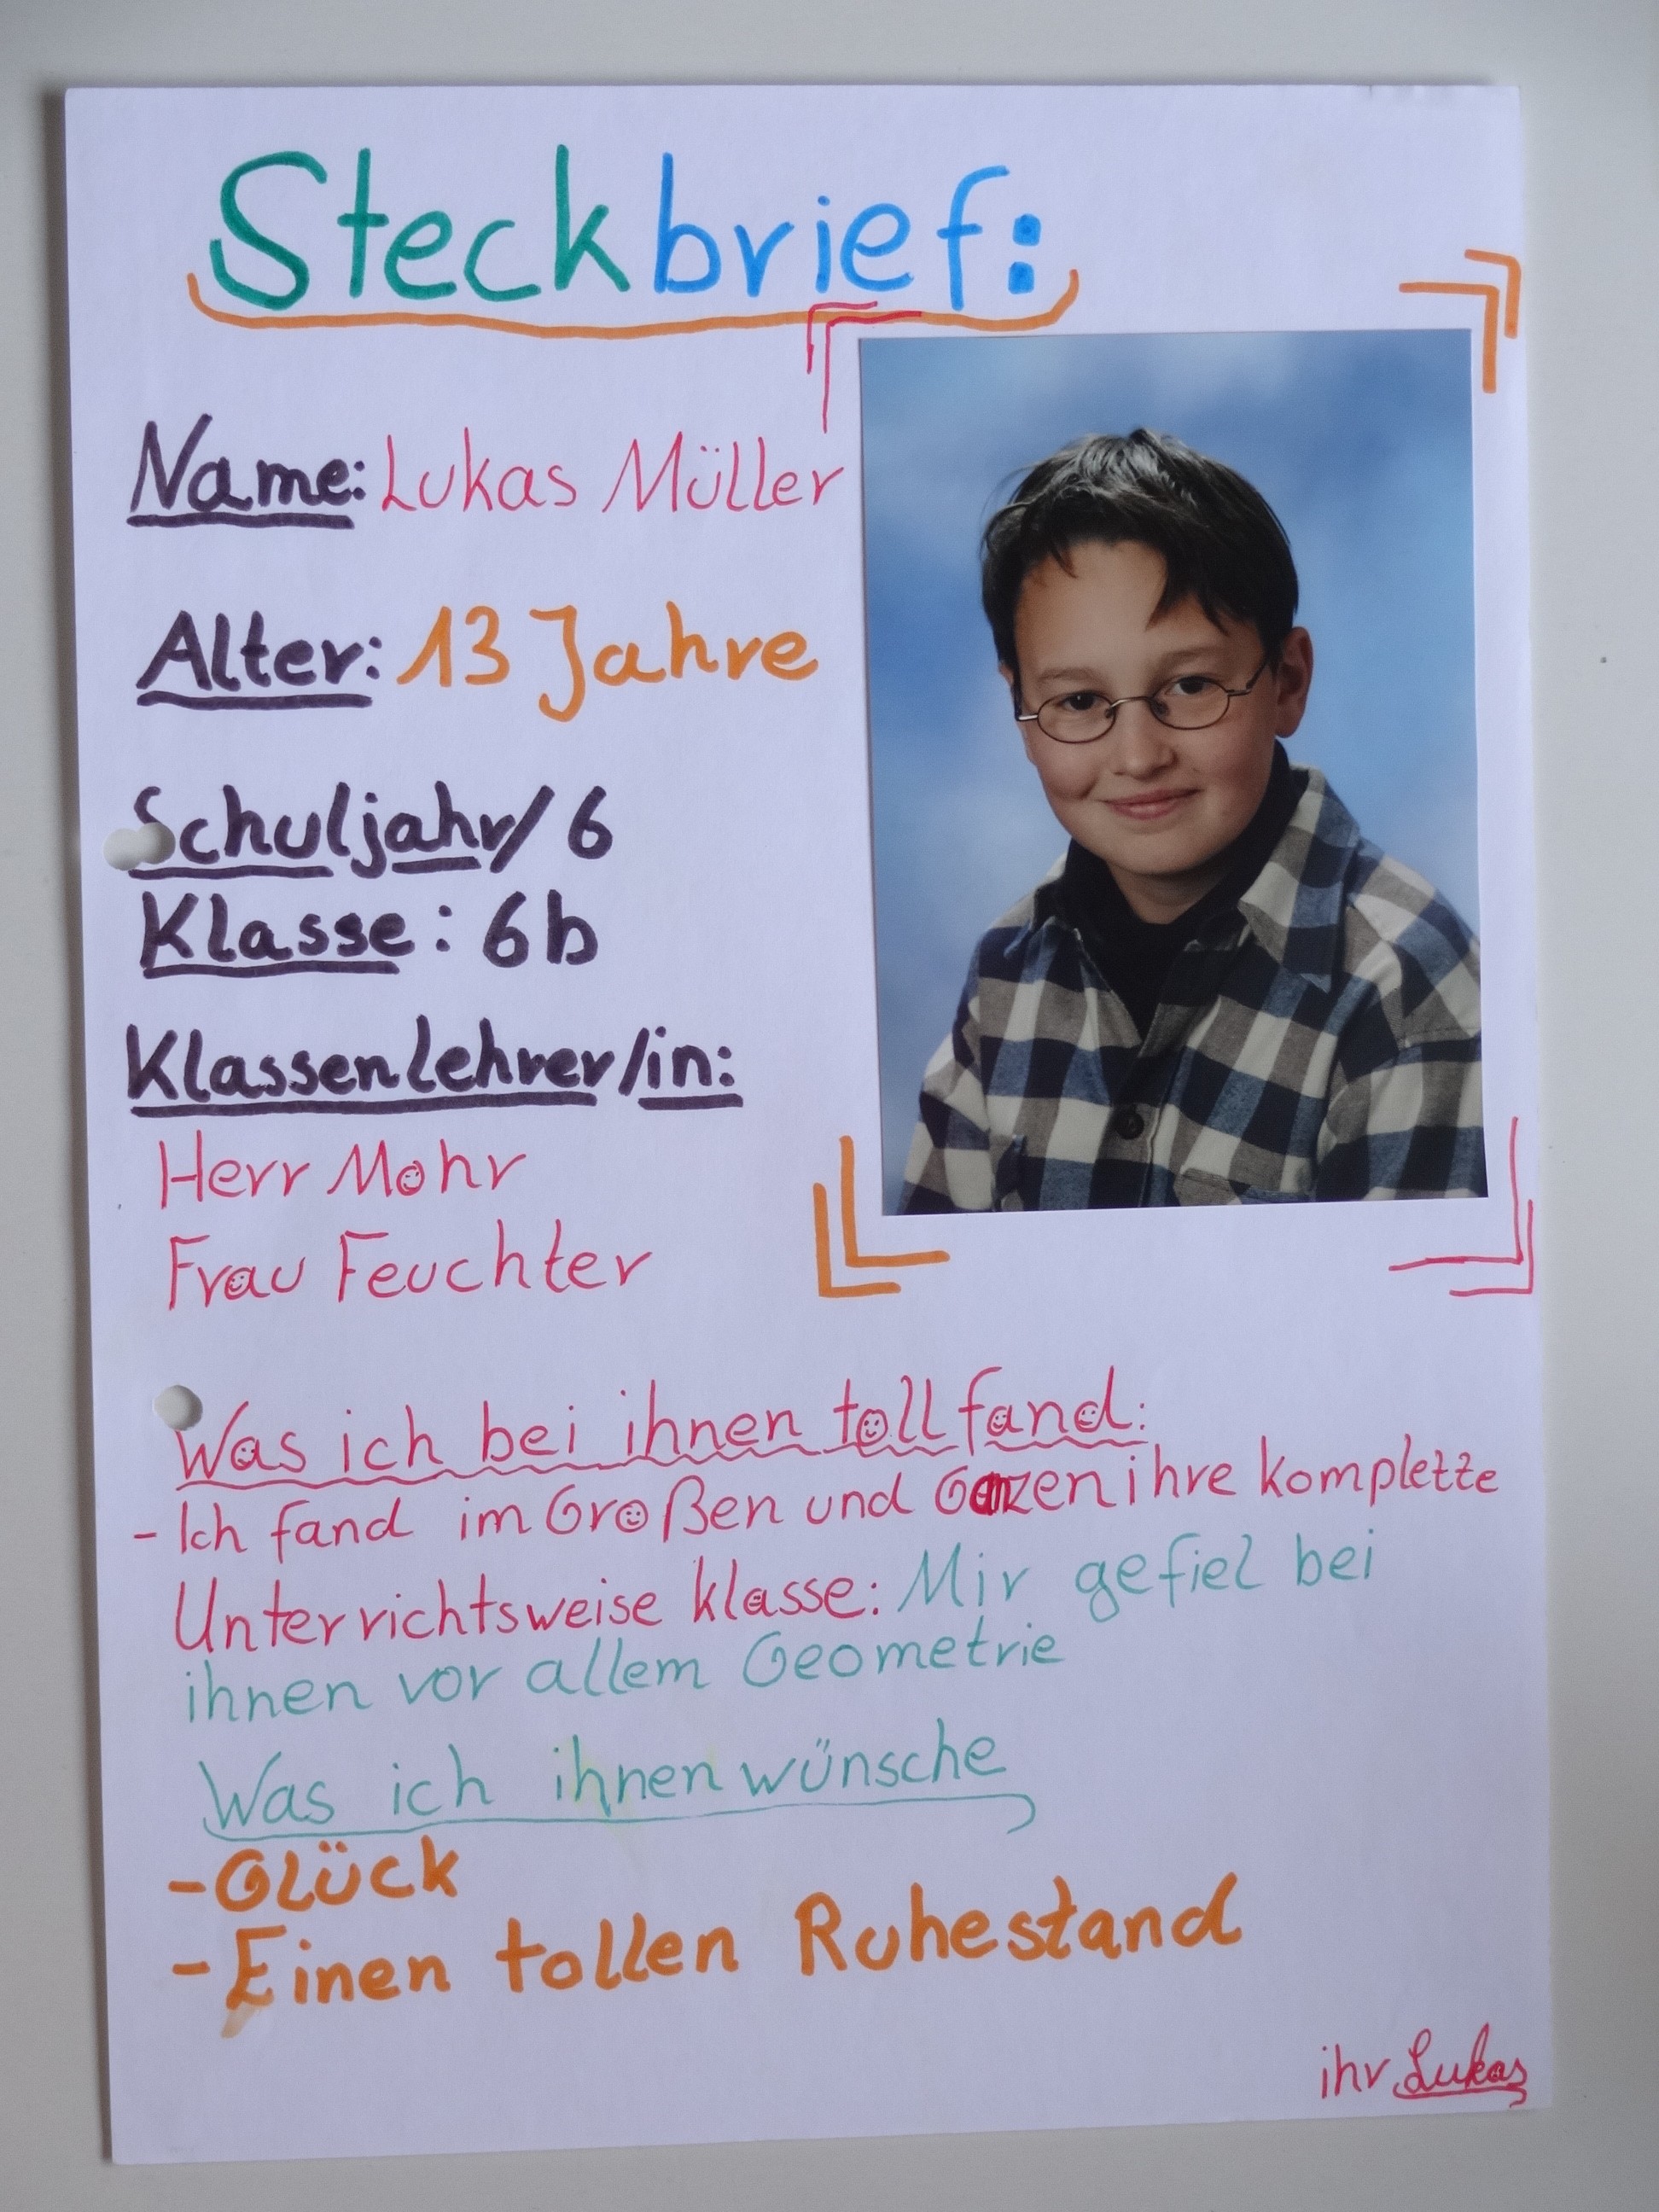 Steckbrief:
Name: Lukas Müller
Alter: 13 Jahre
Schuljahr/ 6
Klasse: 6b
Klassenlehrer/in:
Herr Mohr
Frau Feuchter
Was ich bei ihnen toll fand:
- Ich fand im Großen und Ganzen ihre komplette
Unterrichtsweise klasse: Mir gefiel bei
ihnen vor allem Geometrie
Was ich ihnen wünsche
- Glück
- Einen tollen Ruhestand
ihr Lukas